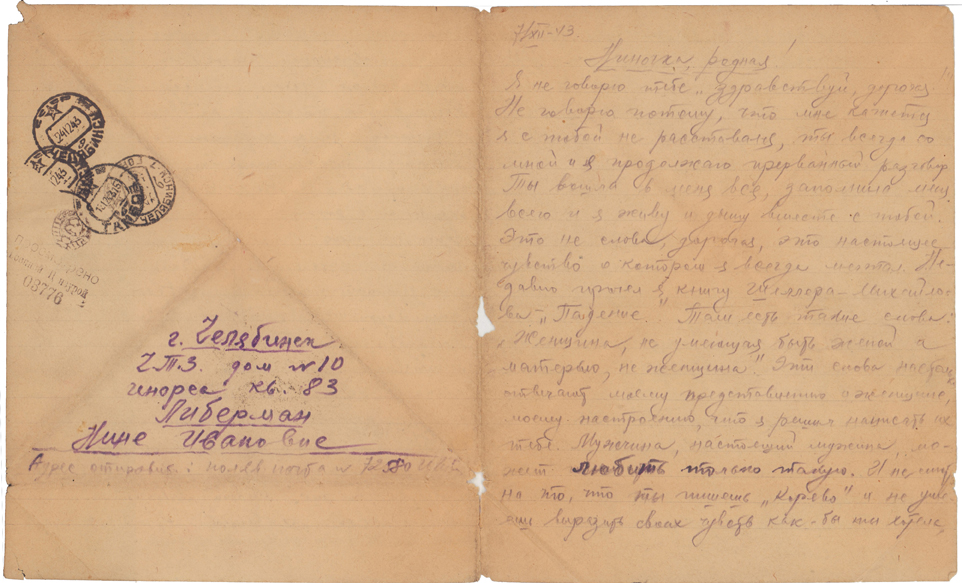 24 12 43
ЧЕЛЯБИНСК
ПРОСМОТРЕНО
Военной Цензурой
03776
г. Челябинск
ЧТЗ. дом №10
кв. 83
Либерман
Нине Ивановне
Адрес отправит.: полев почта №
7/XII-43.
Ниночка, родная!
Я не говорю тебе „здравствуй, дорогая
Не говорю потому, что мне кажется
я с тобой не расставался, ты всегда со
мной и я продолжаю прерванный разговор
Ты вошла в меня вся, заполнила меня
всего и я живу и дышу вместе с тобой.
Это не слова, дорогая, это настоящее
чувство о котором я всегда мечтал. Не-
давно прочел я книгу Шеллера-Михайло-
ва „Падение". Там есть такие слова:
„Женщина, не умеющая быть женой и
матерью, не женщина". Эти слова настолько
отвечают моему представлению о женщине,
моему настроению, что я решил написать их
тебе. Мужчина, настоящий мужчина, мо-
жет любить только такую. И не смотря
на то, что ты пишешь „коряво" и не уме-
еш выразить своих чувств как-бы ты хотела,